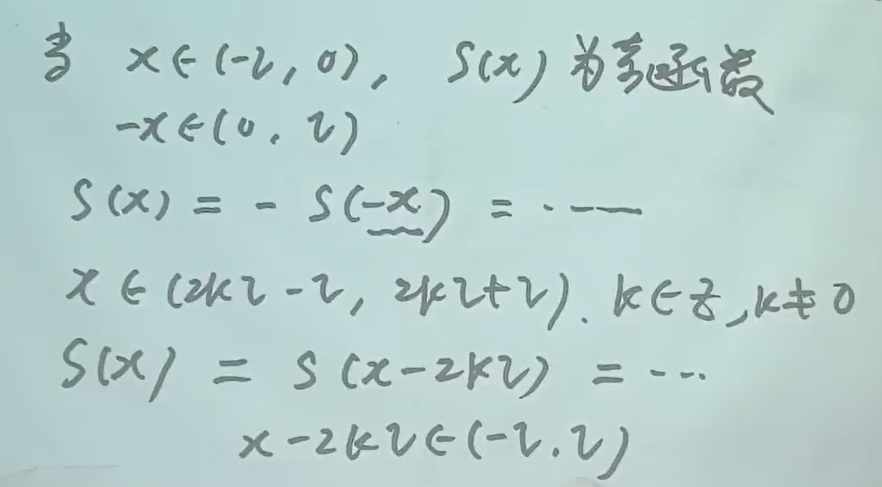 当 x∈(-l, 0), S(x) 为奇函数
-x∈(0, l)
S(x) = - S(-x) = ·——
x∈(2kl-l, 2kl+l). k∈Z, k≠0
S(x) = S(x-2kl) = ...
x-2kl∈(-l, l)